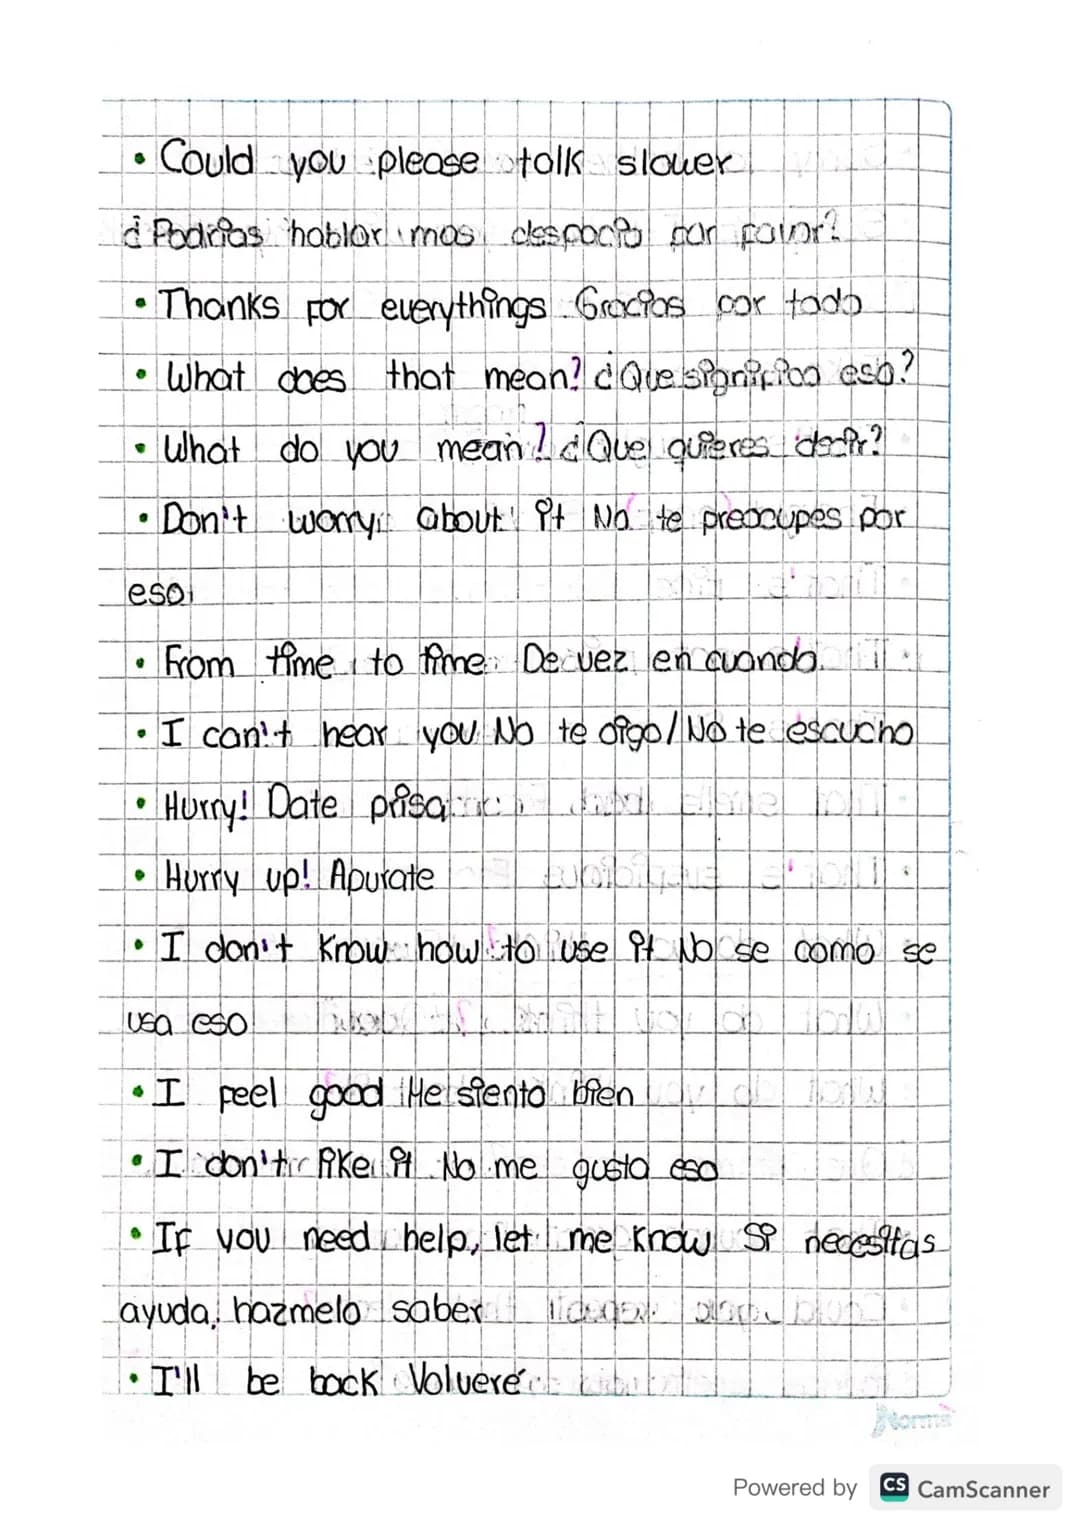 • Could you please talk slower
¿Podrias hablar mas despacio por favor?
• Thanks for everythings Gracias por todo
• What does that mean? ¿Que significa eso?
• What do you mean? ¿Que quieres decir?
• Don't worry about it No te preocupes por
eso
• From time to time De vez en cuando
• I can't hear you No te oigo/No te escucho
• Hurry! Date prisa
• Hurry up! Apurate
• I don't know how to use it No se como se
usa eso
• I feel good Me siento bien
• I don't like it No me gusta eso
• If you need help, let me know Si necesitas
ayuda, hazmelo saber
• I'll be back Volveré
Norma
Powered by CS CamScanner